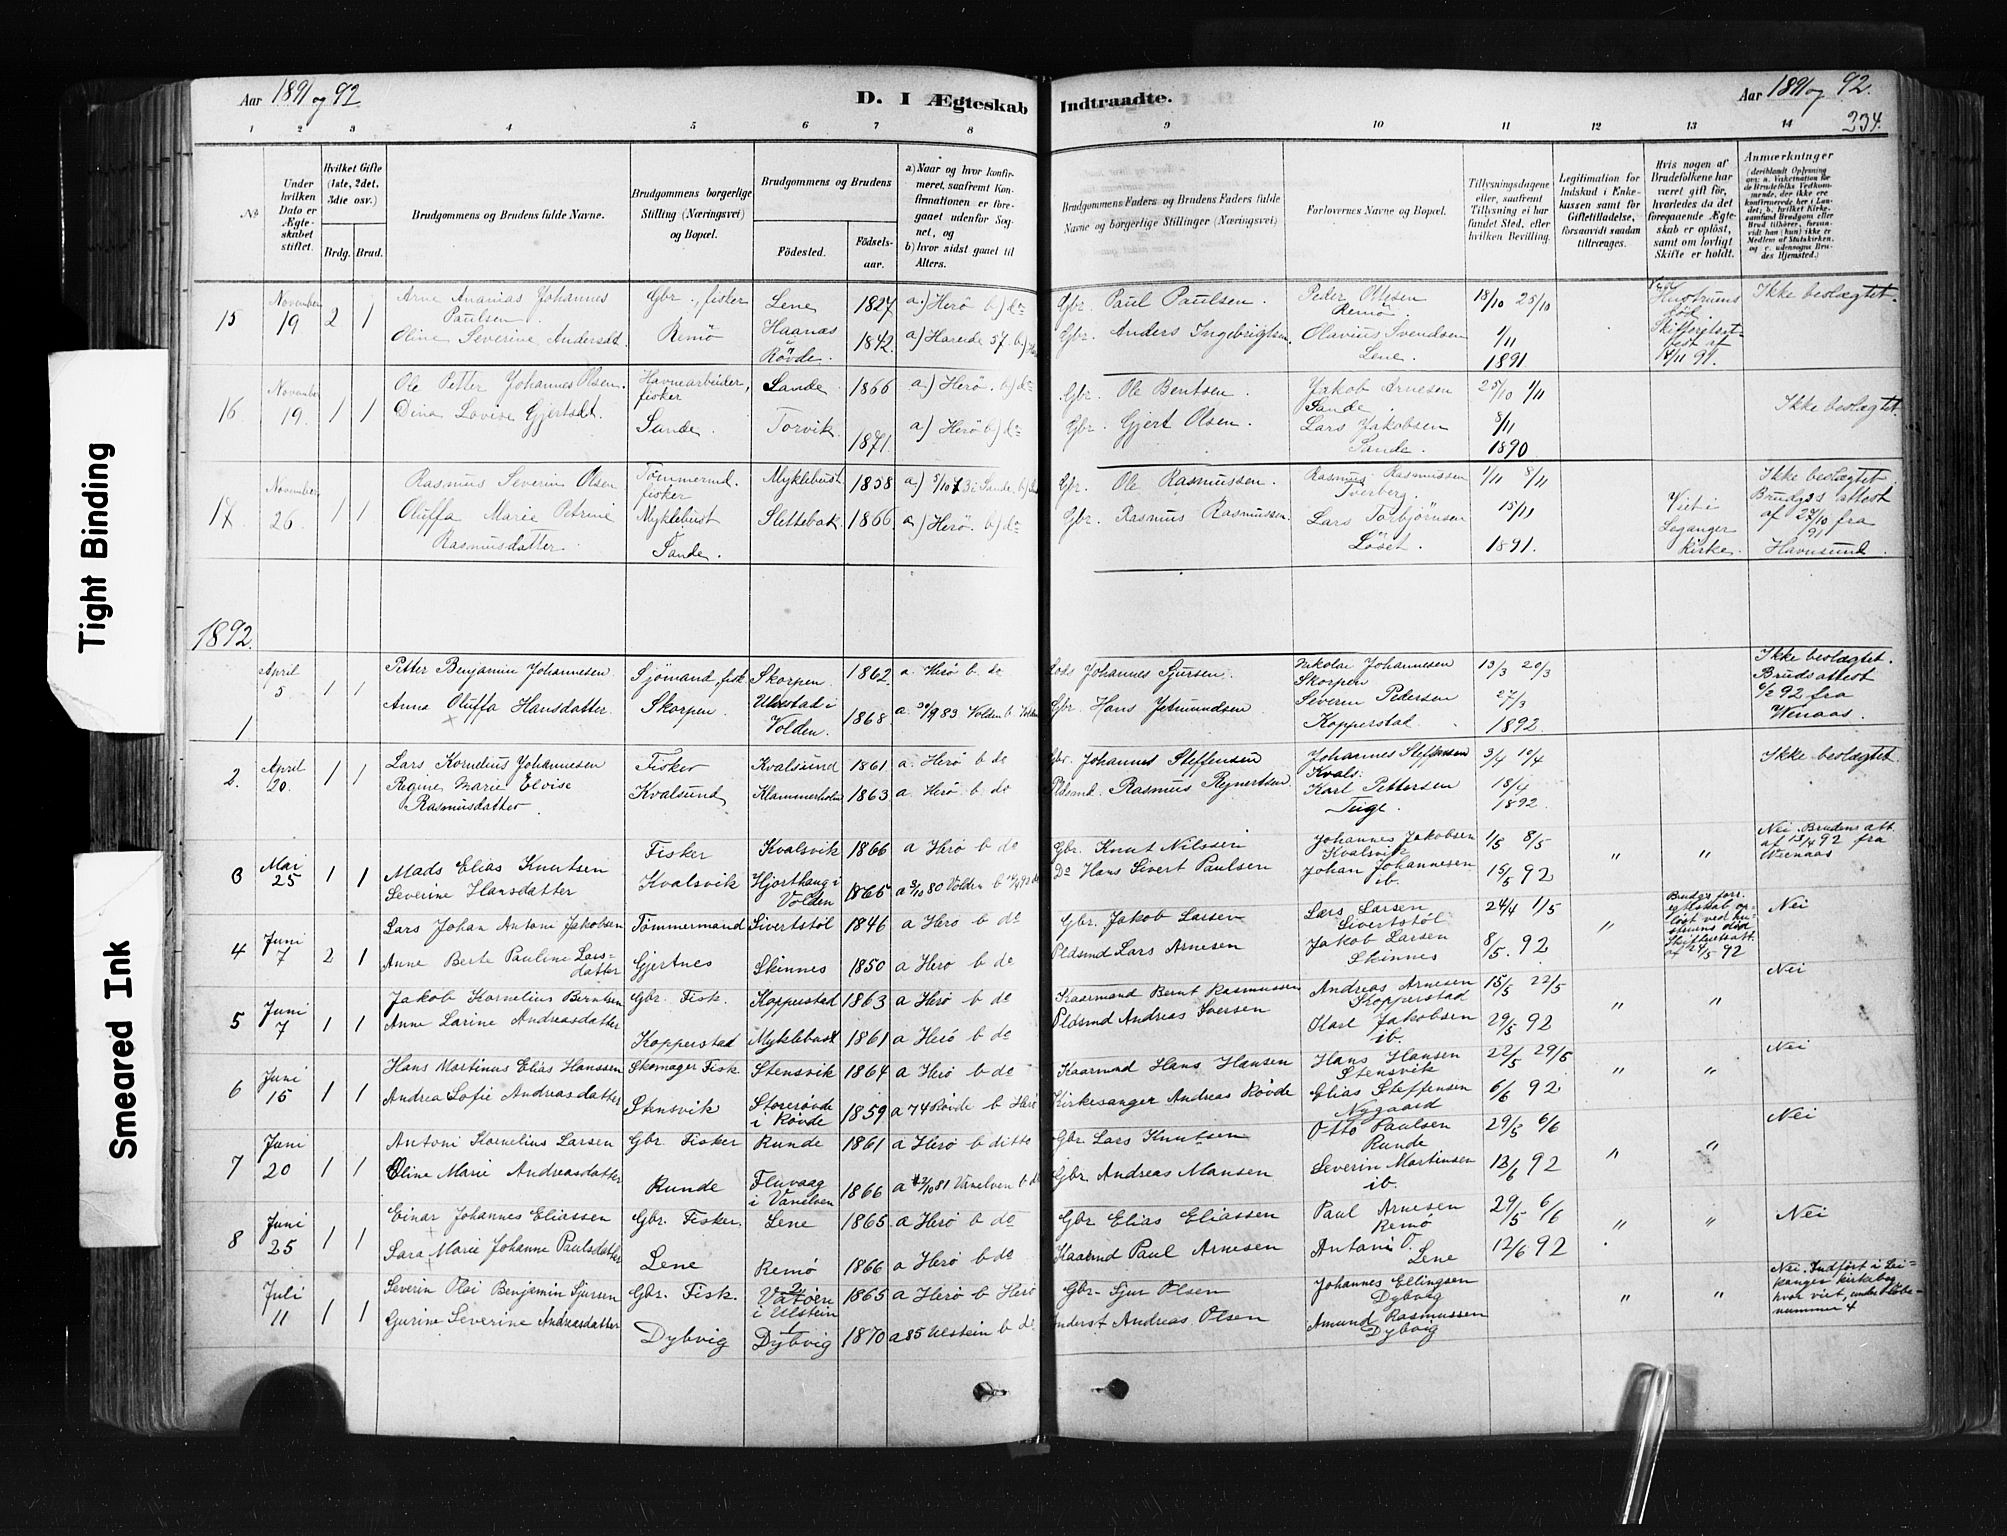 Tight Binding
Smeared Ink
Aar 1891 og 92
D. I Ægteskab Indtraadte.
Aar 1891 og 92.
234.
1 2 3 4 5 6 7 8 9 10 11 12 13 14
№
Under hvilken Dato er Ægteskabet stiftet.
Hvilket Gifte (1ste, 2det, 3die osv.)
Brdg. Brud.
Brudgommens og Brudens fulde Navne.
Brudgommens borgerlige Stilling (Næringsvei) og Bopæl.
Brudgommens og Brudens
Fødested.
Fødselsaar.
a) Naar og hvor konfirmeret, saafremt Konfirmationen er foregaaet udenfor Sognet, og
b) hvor sidst gaaet til Alters.
Brudgommens Faders og Brudens Faders fulde Navne og borgerlige Stillinger (Næringsvei)
Forlovernes Navne og Bopæl.
Tillysningsdagene eller, saafremt Tillysning ei har fundet Sted, efter hvilken Bevilling.
Legitimation for Indskud i Enkekassen samt for Giftetilladelse, forsaavidt saadan tiltrænges.
Hvis nogen af Brudefolkene har været gift før, hvorledes da det foregaaende Ægteskab er opløst, samt om lovligt Skifte er holdt.
Anmærkninger
15 November 19 2 1
Arne Ananias Johannes Paulsen
Oline Severine Andersdt.
Gbr., fisker Remö
Lene 1827 a.) Herö b) do
Haanas i Rövde. 1842. a) Harede 57 b)
Gbr. Paul Paulsen.
Gbr. Anders Ingebrigtsen.
Peder Olsen Remö
Olavius Svendsen Lene.
18/10 25/10 1/11 1891.
Hustruens död
18/11 91.
Ikke beslægtet.
16 November 19. 1 1
Ole Petter Johannes Olsen.
Dina Lovise Gjertsdt.
Havnearbeider, fisker Sande.
Sande 1866 a.) Herö. b) do
Torvik. 1871. a) Herö b) do
Gbr. Ole Bentsen.
Gbr. Gjert Olsen.
Jakob Arnesen Sande.
Lars Jakobsen Sande.
25/10 1/11 8/11 1890
Ikke beslægtet.
17 November 26 1 1
Rasmus Severin Olsen
Oluffa Marie Petrine Rasmusdatter.
Tømmermd. fisker Myklebust Sande.
Myklebust 1858 a) 5/10 73 i Sande, b)
Slettebak 1866 a) Herö. b) do
Gbr. Ole Rasmussen.
Gbr. Rasmus Rasmussen.
Rasmus Rasmussen Tverberg.
Lars Torbjörnsen Löset.
1/11 8/11 15/11 1891.
Viet i Leganger Kirke.
Ikke beslægtet. Brudgs attest af 27/10 91 fra Havnsund.
1892.
1 April 5 1 1
Petter Benjamin Johannesen
Anna Oluffa Hansdatter.
Sjömand, fisk. Skorpen.
Skorpen. 1862. a. Herö b. do
Ulvestad i Volden. 1868 a. 30/9 83 Volden b. Volden
Lods Johannes Sjursen.
Gbr. Hans Jetmundsen
Nikolai Johannesen Skorpen
Severen Pedersen Kopperstad
13/3 20/3 27/3 1892.
Ikke beslægtet. Bruds attest 6/2 92 fra Wenaas.
2. April 20. 1 1
Lars Kornelius Johannesen
Regine Marie Elvise Rasmusdatter
Fisker Kvalsund
Kvalsund 1861 a. Herö b. do
Klammerholm 1863 a. Herö b. do
Gbr. Johannes Steffensen
Pldsmd. Rasmus Reynertsen
Johannes Steffensen Kvals.
Karl Pettersen Tuge.
3/4 10/4 18/4 1892.
Ikke beslægtet.
3 Mai 25 1 1
Mads Elias Knutsen
Severine Hansdatter
Fisker Kvalsvik
Kvalsvik 1866 a Herö b do
Hjorthaug i Volden 1865 a 3/10 80 Volden b
Gbr. Knut Nilssen
Do Hans Sivert Paulsen
Johannes Jakobsen Kvalsvik
Johan Johannesen ib.
1/5 8/5 15/5 92
" "
Nei. Brudens att. af 13/4 92 fra Wennaas
4 Juni 7 2 1
Lars Johan Antoni Jakobsen
Anne Berte Pauline Larsdatter
Tömmermand Gjertnes
Sivertstöl 1846 a Herö b do
Skinnes 1850 a Herö b do
Gbr. Jakob Larsen
Pldsmd Lars Arnesen
Lars Larsen Sivertstöl
Jakob Larsen Skinnes
24/4 1/5 8/5. 92
"
Brudgs forr. egteskab oplöst ved hustruens död Skifteratt. af 24/5 92
Nei
5 Juni 7 1 1
Jakob Kornelius Berntsen
Anne Larine Andreasdatter
Gbr. Fisk. Kopperstad
Kopperstad 1863 a Herö b do
Myklebust 1861 a Herö b do
Kaarmand Bernt Rasmussen
Pldsmd Andreas Iversen
Andreas Arnesen Kopperstad
Karl Jakobsen ib.
15/5 22/5 29/5 92
" "
Nei
6 Juni 15 1 1
Hans Martinus Elias Hanssen
Andrea Sofie Andreasdatter
Skomager Fisk Stensvik
Stensvik 1864 a Herö b do
Storerövde i Rövde 1859 a 74 Rövde b Herö
Kaarmd Hans Hansen
Kirkesanger Andreas Rövde
Hans Hansen Stensvik
Elias Steffensen Nygaard
22/5 29/5 6/6 92
" "
Nei
7 Juni 20 1 1
Antoni Kornelius Larsen
Oline Marie Andreasdatter
Gbr Fisker Runde
Runde 1861 a Herö b ditto
Fluvaag i Vanelven 1866 a 2/10 81 Vanelven b do
Gbr Lars Knutsen
Gbr Andreas Mansen
Otto Paulsen Runde
Severin Martinsen ib.
29/5 6/6 13/6 92
" "
Nei
8 Juni 25 1 1
Einar Johannes Eliassen
Sara Marie Johanne Paulsdatter
Gbr. Fisker. Lene
Lene 1865. a Herö b do
Remö 1866 a Herö b do
Gbr Elias Eliassen
Kaarmd Paul Arnesen
Paul Arnesen Remö
Antoni O. Lene
29/5 6/6 12/6 92
" "
Nei
Juli 11 1 1
Severin Olai Benjamin Sjursen
Gurine Severine Andreasdatter
Gbr. Fisk. Dybvig
Vatöen i Ulstein 1865 a Herö b Herö
Dybvig 1870 a 85 Ulstein b do
Gbr Sjur Olsen
Inderst Andreas Olsen
Johannes Ellingsen Dybvig
Amund Rasmussen Dybvig
" "
Nei. Indført i Leikanger kirkebog hvor viet, under Löbenummer 4